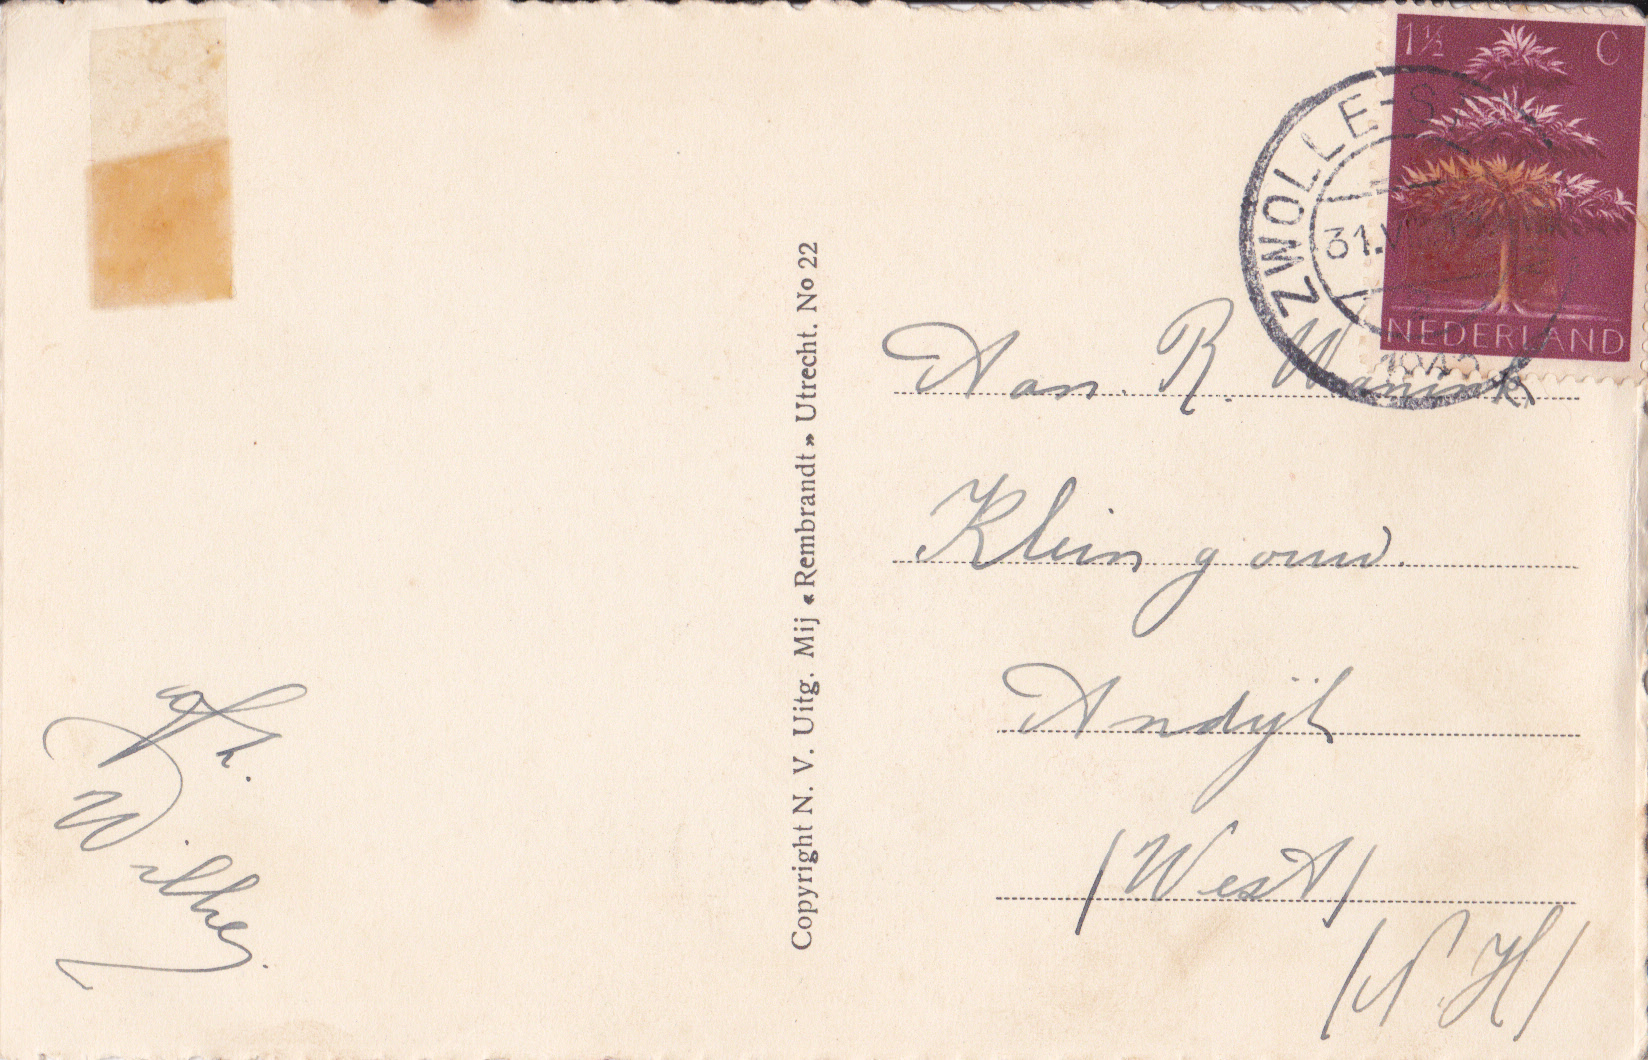 1½ C
NEDERLAND
ZWOLLE-S
31.V
Aan. R. Wannink
Klein gouw.
Andijk
(West)
(N.H)
Copyright N. V. Uitg. Mij «Rembrandt» Utrecht. No 22
afz.